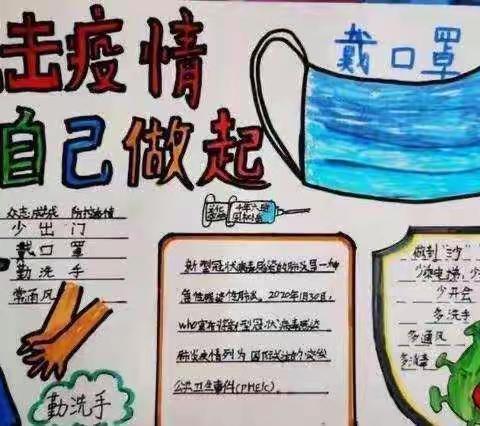 击疫情
自己做起
戴口罩
众志成城 防控疫情
少出门
戴口罩
勤洗手
常通风
勤洗手
新型冠状病毒感染的肺炎是一种
急性感染性肺炎。2020年1月30日,
who宣布将新型冠状病毒感染
肺炎疫情列为国际关注的突发
公共卫生事件(PHEIC).
做到"三少"
少开会
多洗手
多通风
多消毒